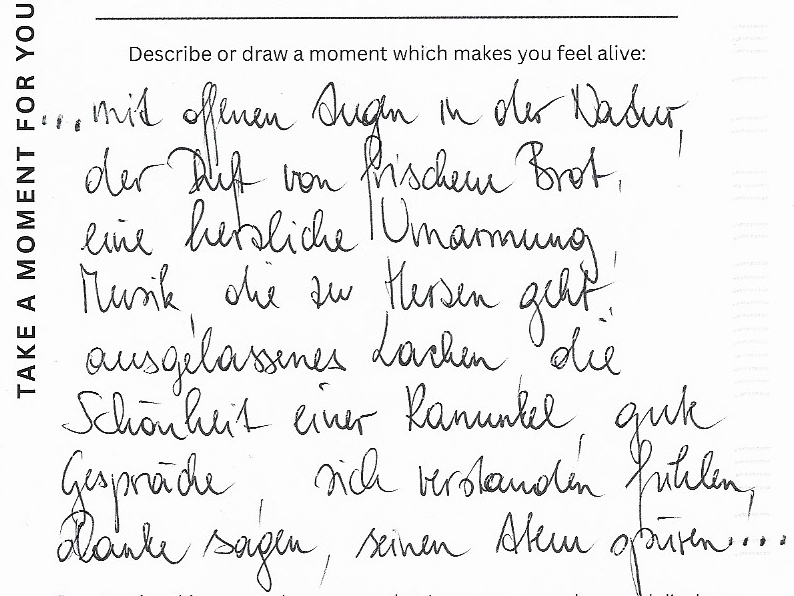 TAKE A MOMENT FOR YOU
Describe or draw a moment which makes you feel alive:
...mit offenen Augen in der Natur,
der Duft von frischem Brot,
eine herzliche Umarmung,
Musik, die zu Herzen geht,
ausgelassenes Lachen, die
Schönheit einer Ranunkel, gute
Gespräche, sich verstanden fühlen,
danke sagen, seinen Atem spüren....